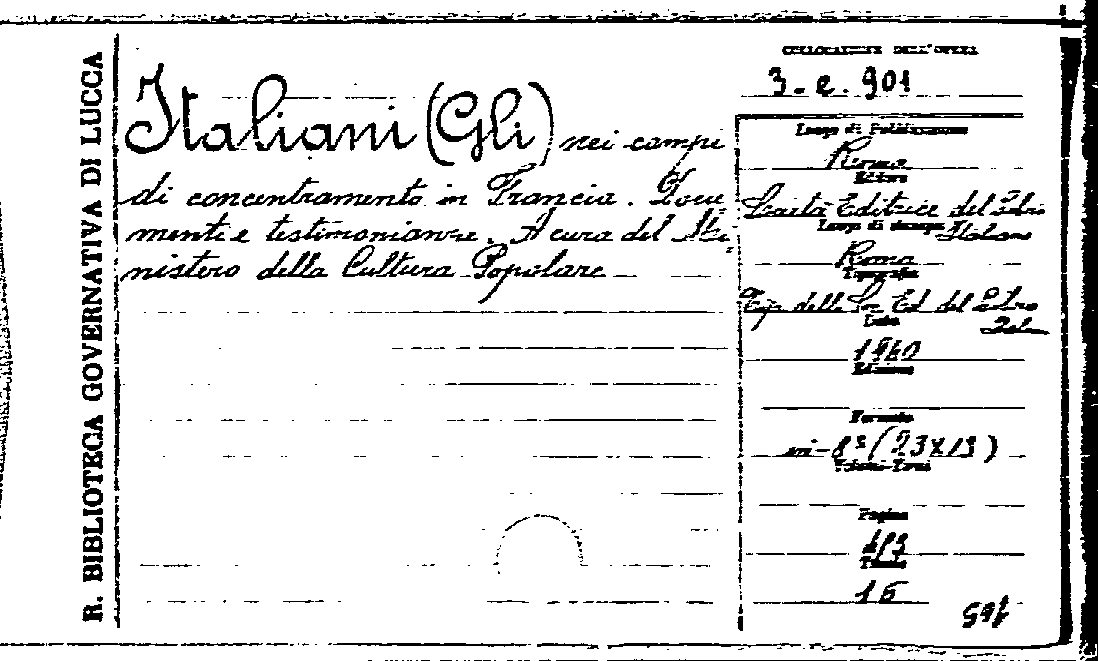 R. BIBLIOTECA GOVERNATIVA DI LUCCA
Italiani (Gli) nei campi
di concentramento in Francia. Docu-
menti e testimonianze. A cura del Mi-
nistero della Cultura Popolare
COLLOCAZIONE DELL'OPERA
3. e. 901
Luogo di Pubblicazione
Roma
Editore
Società Editrice del Libro
Italiano
Luogo di stampa
Roma
Tipografia
Tip. della Soc. Ed. del Libro
Ital.
Data
1940
Edizione
Formato
in-8° (23x15)
Volumi-Tomi
Pagine
Tavole
16